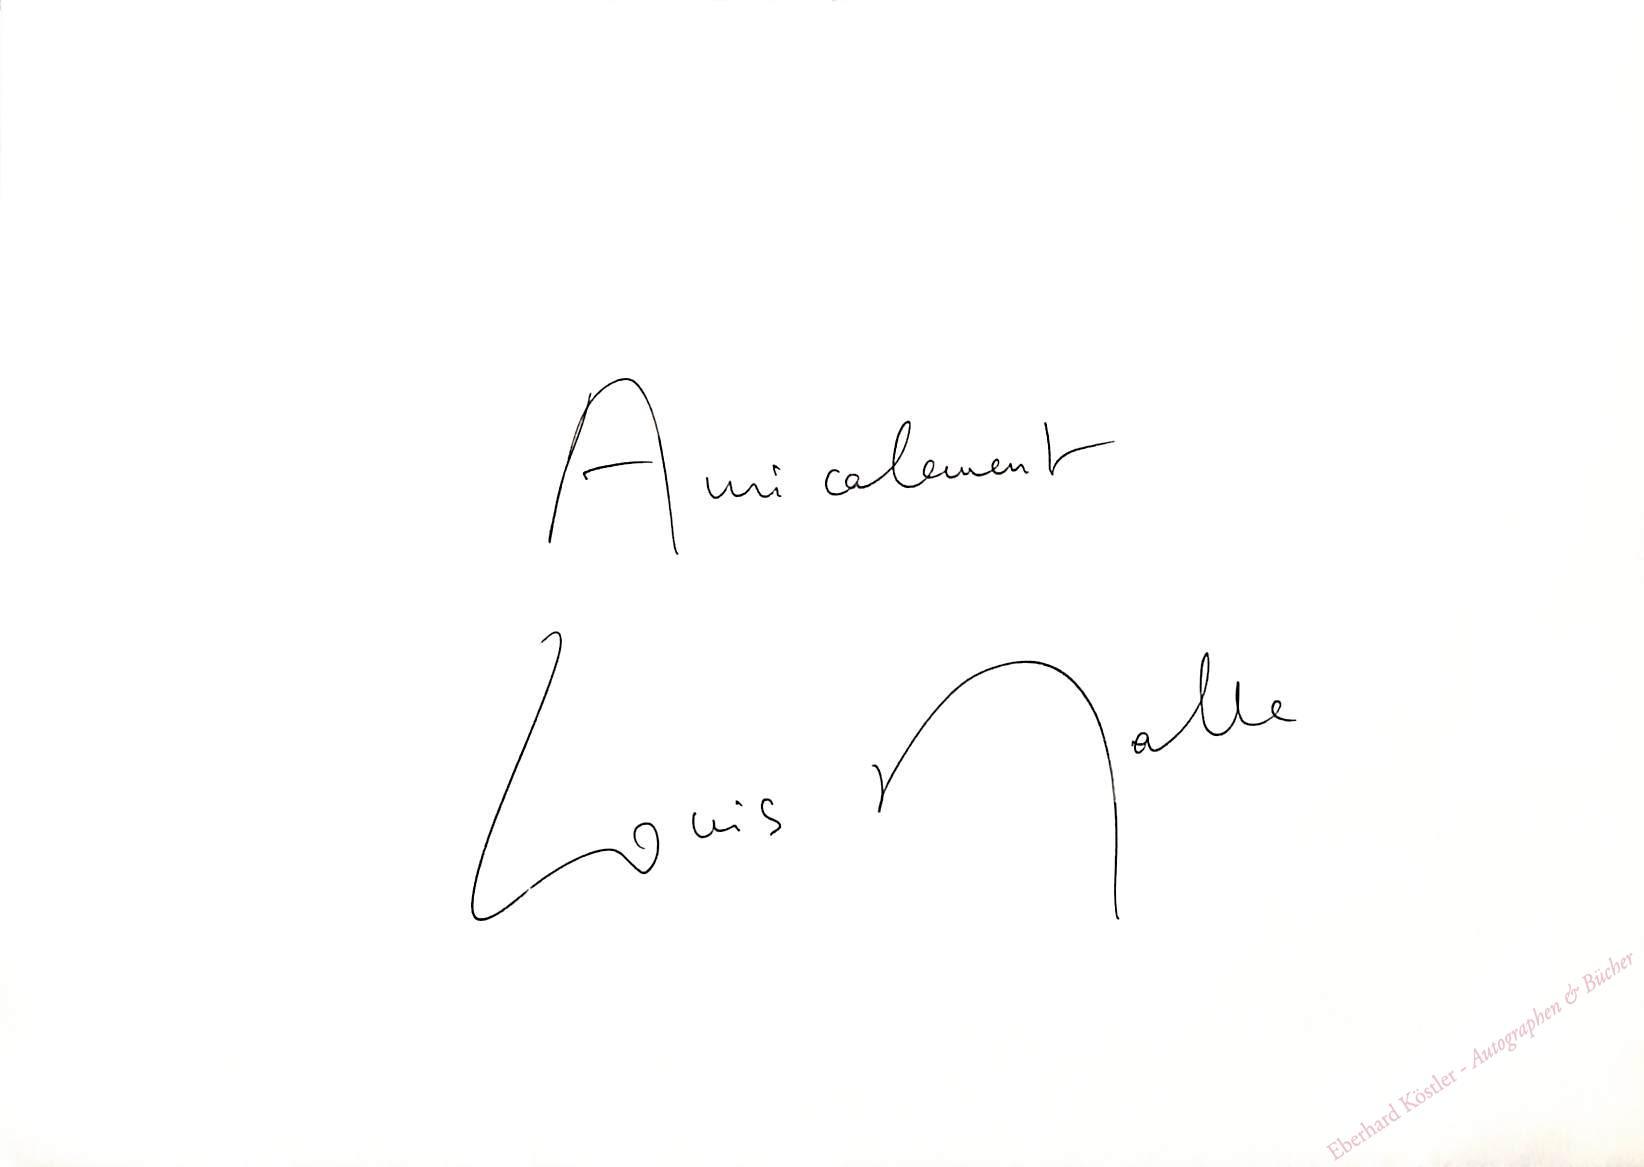 Amicalement
Louis Malle
Eberhard Köstler - Autographen & Bücher